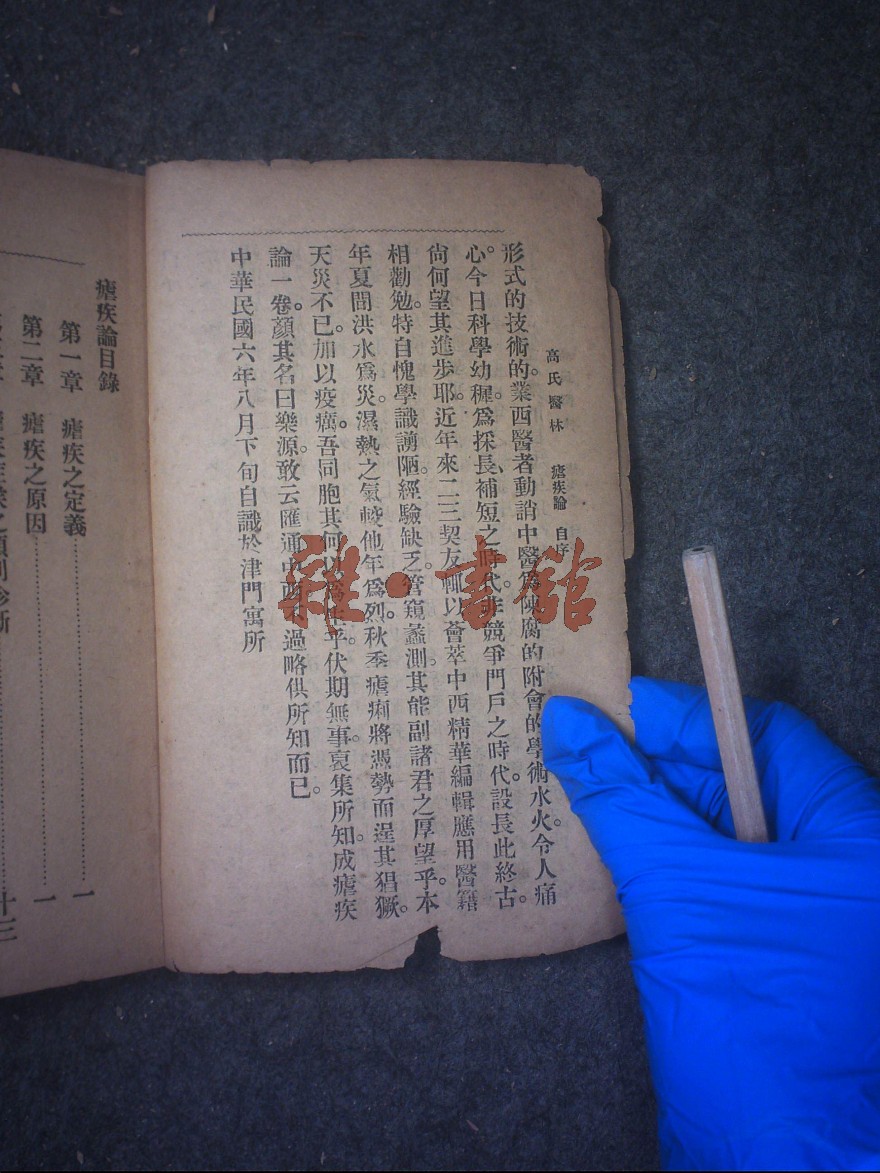 高氏醫林 瘧疾論 自序
形式的技術的。業西醫者動誚中醫爲陳腐的附會的學術。水火。令人痛
心。今日科學幼穉。爲採長補短之時代。非競爭門戶之時代。設長此終古。
尙何望其進步耶。近年來二三契友輒以薈萃中西精華編輯應用醫籍
相勸勉。特自愧學識謭陋。經驗缺乏。管窺蠡測。其能副諸君之厚望乎。本
年夏間洪水爲災。濕熱之氣較他年爲烈。秋季瘧痢將憑勢而逞其猖獗。
天災不已。加以疫癘。吾同胞其何以爲生乎。伏期無事。裒集所知。成瘧疾
論一卷。顏其名曰樂源。敢云匯通中西。不過略供所知而已。
中華民國六年八月下旬自識於津門寓所
瘧疾論目錄
第一章 瘧疾之定義 一
第二章 瘧疾之原因 一
十三
雜·書館